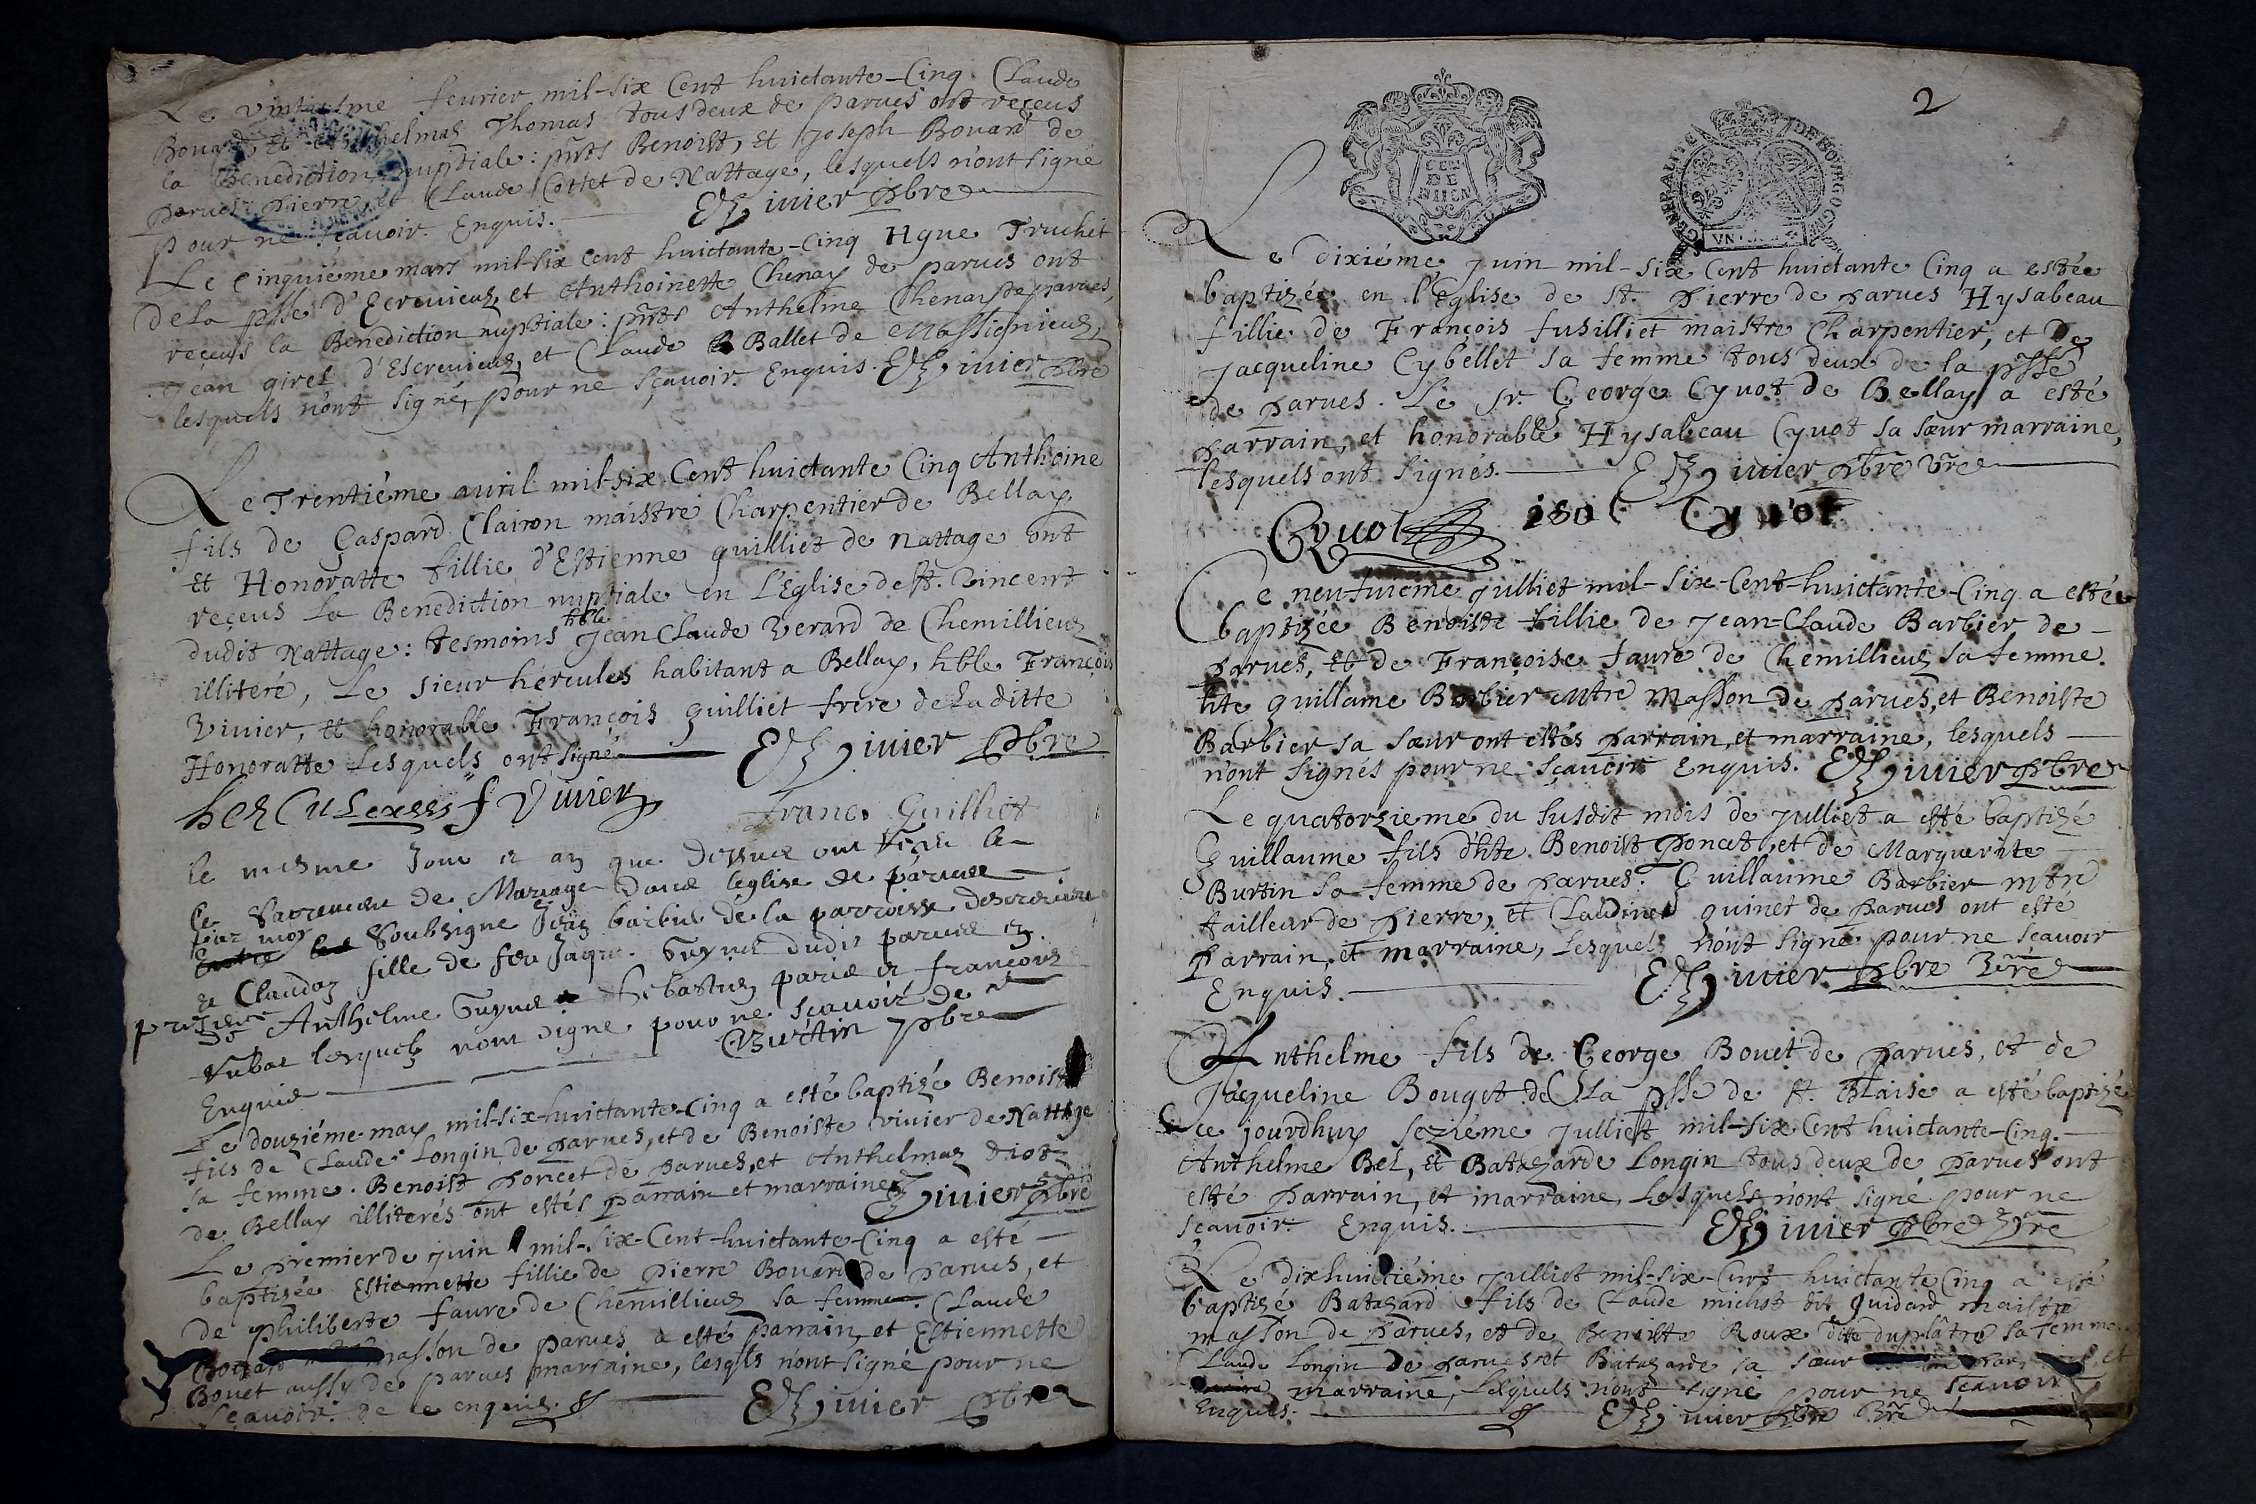 Le vintiesme feurier mil-six Cent huictante-Cinq Claude
Bouard et Anthelmaz Thomas tous deux de parues ont reçeus
la Benediction nuptiale: pnts Benoist, et Joseph Bouard de
parues, pierre, et Claude Cottet de Nattage, lesquels n'ont signé
pour ne sçauoir. Enquis. Viuier pbre
Le Cinquieme mars mil-six Cent huictante-Cinq Hgue Truchet
de la psse d'Ecreuieuz, et Anthoinette Chenay de parues ont
reçeus la Benediction nuptiale: pnts Anthelme Chenay de parues,
Jean girel d'Escreuieuz, et Claude Ballet de Massignieuz,
lesquels n'ont signé, pour ne sçauoir. Enquis. Viuier pbre
Le Trentiéme auril mil-six Cent huictante Cinq Anthoine
fils de Gaspard Clairon maistre Charpentier de Bellay
et Honoratte fillie d'Estienne guilliet de nattage ont
reçeus la Benediction nuptiale en l'Eglise de st. Vincent
dudit Nattage: tesmoins hble Jean Claude Verard de Chemillieuz
illiteré, Le sieur hércules habitant a Bellay, hble François
Viuier, et honorable François guilliet frere de la ditte
Honoratte Lesquels ont signé Viuier pbre
hercules f Viuier
Franc. Guilliet
le mesme Jour et an que dessus ont reçu le
Sacrement de Mariage dans leglise de parues
par moy Soubsigne Jean barbier de la parroisse
et Claudaz fille de feu Jaque Guynet dudit parues en
presence Anthelme Guynet Sebastien et françois
lesquels nont signe pour ne sçauoir de ce
Enquis Burtin pbre
Le douziéme may mil-six-huictante-Cinq a esté baptizé Benoist
fils de Claude Longin de parues, et de Benoiste viuier de Nattage
sa femme. Benoist poncet de parues, et Anthelmaz
de Bellay illiterés ont estés parrain et marraine Viuier pbre
Le premier de juin mil-six-Cent-huictante-Cinq a esté
baptizée Estiennette fillie de pierre Bouard de parues, et
de philiberte faure de Chemillieuz sa femme. Claude
Bouard masson de parues a esté parrain, et Estiennette
Bouet aussy de parues marraine, lesqls n'ont signé pour ne
sçauoir. de ce enquis. Viuier pbre
2
GENERALITE DE BOVRGOG
Le dixiéme juin mil-six Cent huictante Cinq a estée
baptizée en l'Eglise de st. pierre de parues Hysabeau
fillie de François fusilliet maistre Charpentier, et de
jacqueline Cybellet sa femme tous deux de la psse
de parues. Le sr. George Cyuot de Bellay a esté
parrain, et honorable Hysabeau Cyuot sa sœur marraine,
lesquels ont signés. Viuier pbre vre
Cyuot Cyuot
Le neufuieme julliet mil-six-Cent-huictante-Cinq a estée
baptizée Benoiste fillie de jean-Claude Barbier de
parues, et de Françoise faure de Chemillieuz sa femme.
hte guillame Barbier mtre masson de parues, et Benoiste
Barbier sa sœur ont estés parrain, et marraine, lesquels
n'ont signés pour ne sçauoir Enquis. Viuier pbre
Le quatorzieme du susdit mois de julliet a esté baptizé
Guillaume fils d'hte. Benoist poncet, et de Marguerite
Burtin sa femme de parues. Guillaume Barbier mtre
tailleur de pierre, et Claudine guinet de parues ont esté
parrain, et marraine, lesquels n'ont signé pour ne sçauoir
Enquis. Viuier pbre Vre
Anthelme fils de George Bouet de parues, et de
jacqueline Bouget de la psse de st. Blaise a esté baptizé
ce jourdhuy sezieme julliet mil-six Cent huictante-Cinq.
Anthelme Bel, et Batazarde Longin tous deux de parues ont
esté parrain, et marraine, Lesquels n'ont signé pour ne
sçauoir. Enquis. Viuier pbre Vre
Le dixhuictiéme julliet mil-six-Cent huictante Cinq a esté
baptizé Batazard fils de Claude michot dit Guidard maistre
masson de parues, et de Benoiste Roux ditte duplâtre sa femme.
Claude Longin de parues et Batazarde sa sœur
marraine, lesquels n'ont signé pour ne sçauoir
Enquis. Viuier pbre Vre